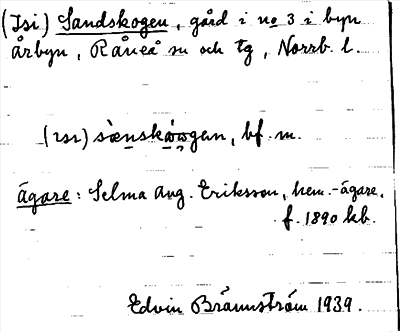 (Isi) Sandskogen, gård i no 3 i byn
Årbyn, Råneå sn och tg, Norrb. l.
sǽnskåwgen, bf. m.
Ägare: Selma Aug. Eriksson, hem.-ägare,
f. 1890 kb.
Edvin Brännström 1939.